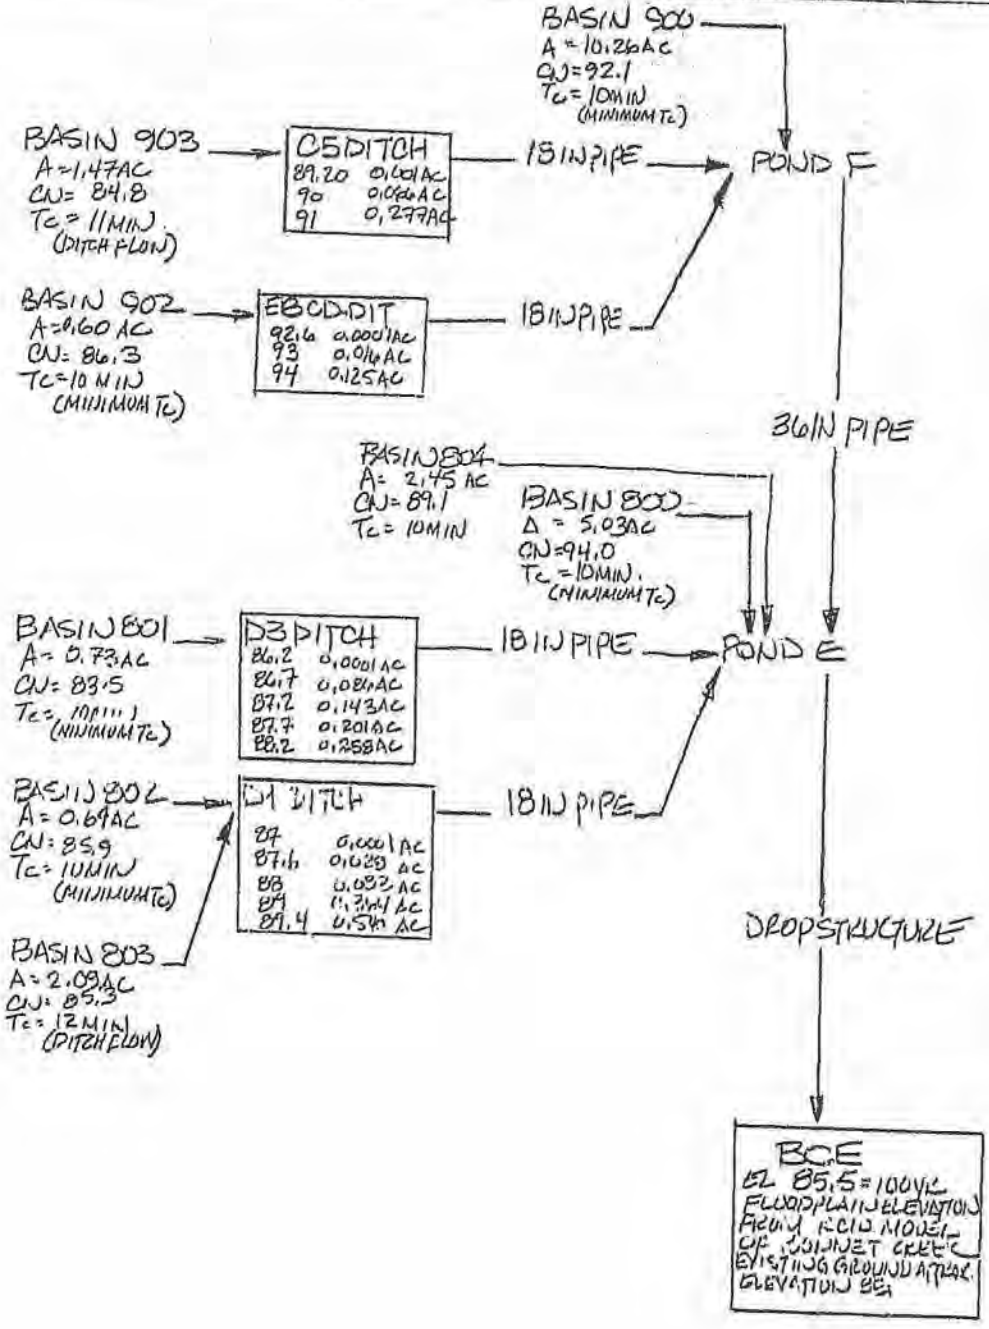 BASIN 900
A = 10.26AC
CN=92.1
Tc = 10MIN
(MINIMUM Tc)
BASIN 903
A=1.47AC
CN= 84.8
Tc = 11MIN.
(DITCH FLOW)
C5 DITCH
89.20 0.001AC
90
91 0.277AC
18 IN PIPE
POND F
BASIN 902
A=0.60 AC
CN= 86.3
Tc=10 MIN
(MINIMUM Tc)
EBCD.DIT
92.6 0.0001AC
93 0.016AC
94 0.125AC
18 IN PIPE
36 IN PIPE
BASIN 804
A= 2.45 AC
CN= 89.1
Tc = 10MIN
BASIN 800
A = 5.03AC
CN=94.0
Tc = 10MIN.
(MINIMUM Tc)
BASIN 801
A= 0.73AC
CN= 83.5
Tc=
(MINIMUM Tc)
D3 DITCH
86.2 0.0001AC
86.7 0.086AC
87.2 0.143AC
87.7 0.201AC
88.2 0.258AC
18 IN PIPE
POND E
BASIN 802
A= 0.69AC
CN= 85.9
Tc = 10MIN
(MINIMUM Tc)
D1 DITCH
87 0.0001 AC
0.028 AC
88 AC
89 AC
89.4 AC
18 IN PIPE
BASIN 803
A= 2.09AC
CN= 85.3
Tc = 12MIN
(DITCH FLOW)
DROP STRUCTURE
BCE
EL 85.5 = 100YR
FLOODPLAIN ELEVATION
FROM RCID MODEL
OF BONNET CREEK
EXISTING GROUND
ELEVATION